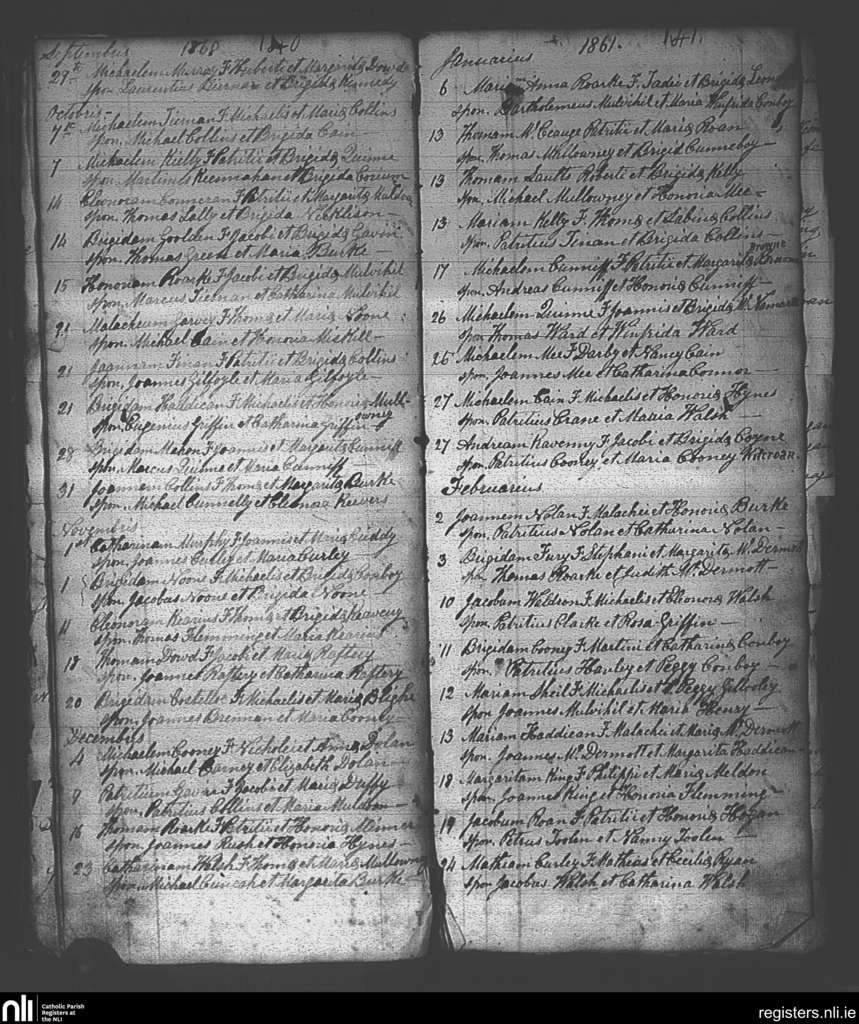 Septembris 1860 1840
29th Michaelem Murray F. Huberti et Margarita Dowd
Spon. Laurentius Tiernan et Brigida Kennedy
Octobris
7th Michaelem Tiernan F. Michaelis et Maria Collins
Spon. Michael Collins et Brigida Cain
7 Michaelem Kielly F. Patritii et Brigida Quinne
Spon. Martinus Keernahan et Brigida
14 Eleonoram Conneran F. Patritii et Margarita Muldoon
Spon. Thomas Lally et Brigida
14 Brigidam Goolden F. Jacobi et Brigida Gavin
Spon. Thomas Green et Maria Burke
15 Honoriam Roarke F. Jacobi et Brigida Mulvihil
Spon. Marcus Tiernan et Catharina Mulvihil
21 Malacheum Garvey F. Thoma et Maria Noone
Spon. Michael Cain et Honoria Miskill
21 Joannam Finan F. Patritii et Brigida Collins
Spon. Joannes Gilfoyle et Maria Gilfoyle
21 Brigidam Haddican F. Michaelis et Honoria Mull-
owney
Spon. Eugenius Griffin et Catharina Griffin
28 Brigidam Mahon F. Joannis et Margarita Cunniff
Spon. Marcus Quinne et Maria Cunniff
31 Joannam Collins F. Thoma et Margarita Burke
Spon. Michael Cunnelly et Elenora Reevers
Novembris
1st Catharinam Murphy F. Joannis et Maria Cuddy
Spon. Joannes Curley et Maria Curley
1 Brigidam Noone F. Michaelis et Brigida Conboy
Spon. Jacobus Noone et Brigida Noone
11 Eleonoram Kearins F. Thoma et Brigida Keaveny
Spon. Thomas Flemming et Maria Kearins
18 Thomam Dowd F. Jacobi et Maria Raftery
Spon. Joannes Raftery et Catharina Raftery
20 Brigidam Costelloe F. Michaelis et Maria Blighe
Spon. Joannes Brennan et Maria Coonly
Decembris
4 Michaelem Cooney F. Nicholei et Anna Dolan
Spon. Michael Carney et Elizabeth Dolan
9 Patritium Gavin F. Jacobi et Maria Duffy
Spon. Patritius Collins et Maria Muldoon
16 Thomam Roarke F. Patritii et Honoria
Spon. Joannes Rush et Honoria Hynes
23 Catharinam Walsh F. Thoma et Maria Mullowney
Spon. Michael et Margarita Burke
Januarius 1861. 1841.
6 Mariam Anna Roarke F. Tadei et Brigida
Spon. Bartholemeus Mulvihil et Maria Winfrida Conboy
13 Thomam Patritii et Maria Roan
Spon. Thomas Mullowney et Brigid Cunneboy
13 Thomam Roberti et Brigida Kelly
Spon. Michael Mullowney et Honoria Mee
13 Mariam Kelly F. Thoma et Sabina Collins
Spon. Patritius Finan et Brigida Collins
Browne
17 Michaelem Cunniff F. Patritii et Margarita
Spon. Andreas Cunniff et Honoria Cunniff
26 Michaelem Quinne F. Joannis et Brigida McNamara
Spon. Thomas Ward et Winfrida Ward
26 Michaelem Mee F. Darby et Nancy Cain
Spon. Joannes Mee et Catharina Connor
27 Michaelem Cain F. Michaelis et Honoria Hynes
Spon. Patritius Crane et Maria Walsh
27 Andream Ravenny F. Jacobi et Brigida Coyne
Spon. Patritius Cooney et Maria Cooney Kilcroan.
Februarius
2 Joannem Nolan F. Malachei et Honoria Burke
Spon. Patritius Nolan et Catharina Nolan
3 Brigidam Fury F. Stephani et Margarita McDermott
Spon. Thomas Roarke et Judith McDermott
10 Jacobum Waldron F. Michaelis et Eleonora Walsh
Spon. Patritius Clarke et Rosa Griffin
11 Brigidam Cooney F. Martini et Catharina Conboy
Spon. Patritius Hauley et Peggy Conboy
12 Mariam Sheil F. Michaelis et Peggy Gilooley
Spon. Joannes Mulvihil et Maria Henry
13 Mariam Haddican F. Malachei et Maria McDermott
Spon. Joannes McDermott et Margarita Haddican
18 Margaritam King F. Philippi et Maria Meldon
Spon. Joannes King et Honoria Flemming
19 Jacobum Roan F. Patritii et Honoria Hogan
Spon. Petrus Toolen et Nanny Toolen
24 Mathiam Curley F. Mathias et Cecilia Ryan
Spon. Jacobus Walsh et Catharina Walsh
nli Catholic Parish
Registers at
the NLI
registers.nli.ie